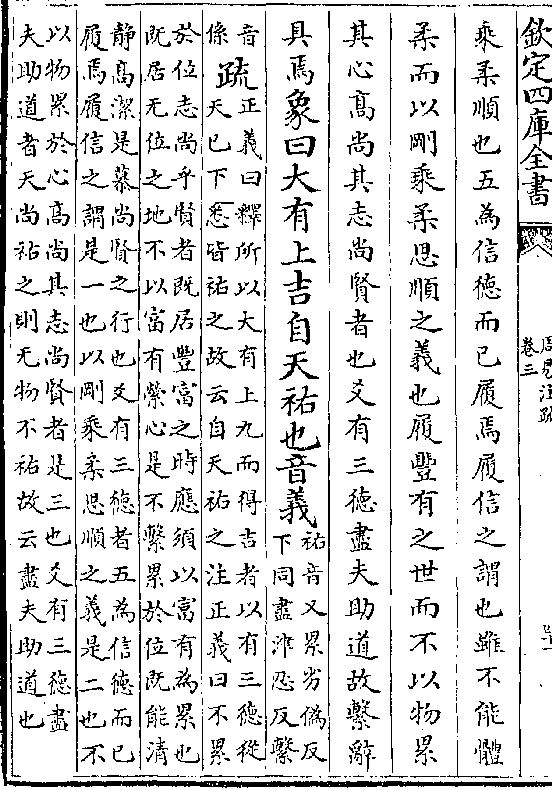 欽定四庫全書
周易注疏
卷三
乘柔順也五為信德而已履焉履信之謂也雖不能體
柔而以剛乘柔思順之義也履豐有之世而不以物累
其心髙尚其志尚賢者也爻有三德盡夫助道故繫辭
具焉象曰大有上吉自天祐也音義祐音又累劣偽反
下同盡津忍反繫
音
係疏正義曰釋所以大有上九而得吉者以有三德從
天已下悉皆祐之故云自天祐之注正義曰不累
於位志尚乎賢者既居豐富之時應須以富有為累也
既居无位之地不以富有縈心是不繫累於位既能清
静髙潔是慕尚賢之行也爻有三德者五為信德而已
履焉履信之謂是一也以剛乘柔思順之義是二也不
以物累於心髙尚其志尚賢者是三也爻有三德盡
夫助道者天尚祐之則无物不祐故云盡夫助道也